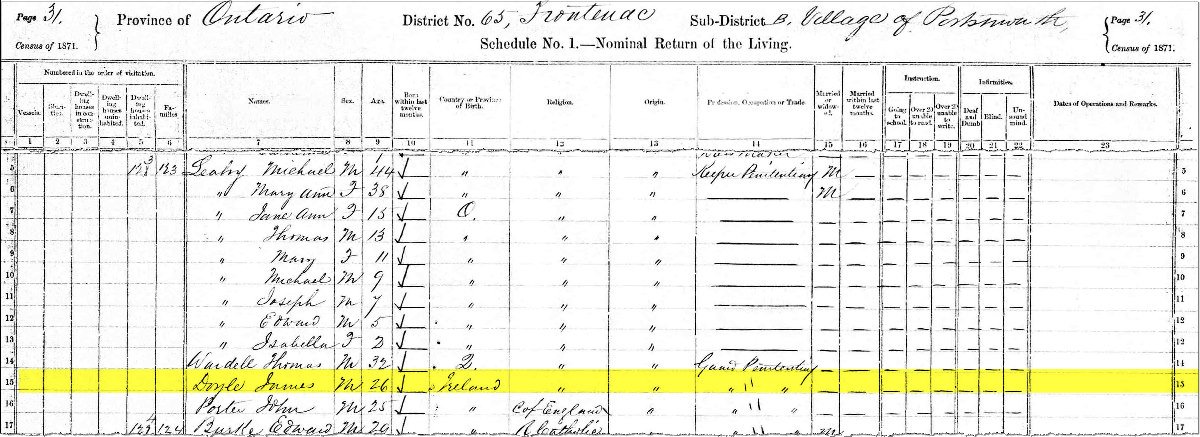 Page 31. Province of Ontario District No. 65, Frontenac Sub-District B. Village of Portsmouth, Page 31.
Census of 1871. Schedule No. 1.—Nominal Return of the Living. Census of 1871.
Numbered in the order of visitation. Instruction. Infirmities.
Vessels. Shanties. Dwelling houses in construction. Dwelling houses uninhabited. Dwelling houses inhabited. Families Names. Sex. Age. Born within last twelve months. Country or Province of Birth. Religion. Origin. Profession, Occupation or Trade. Married or widowed. Married within last twelve months. Going to school. Over 20 unable to read. Over 20 unable to write. Deaf and Dumb. Blind. Unsound mind. Dates of Operations and Remarks.
1 2 3 4 5 6 7 8 9 10 11 12 13 14 15 16 17 18 19 20 21 22 23
5 123 Leahy Michael M 44 " " " Keeper Penitentiary M 5
6 " Mary Ann F 38 " " " M 6
7 " Jane Ann F 15 O. " " 7
8 " Thomas M 13 " " " 8
9 " Mary F 11 " " " 9
10 " Michael M 9 " " " 10
11 " Joseph M 7 " " " 11
12 " Edward M 5 " " " 12
13 " Isabella F 2 " " " 13
14 Wardell Thomas M 32 Q. " " Guard Penitentiary 14
15 Doyle James M 26 Ireland " " " " " 15
16 Porter John M 25 " C of England " " " " 16
17 124 Burke Edward M 26 " R Catholic " " " " M 17